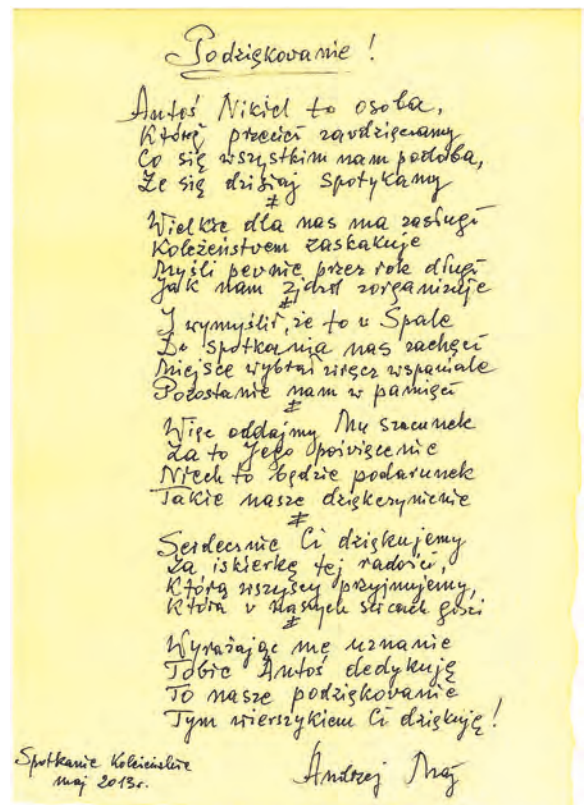 Podziękowanie!
Antoś Nikiel to osoba,
Której przecież zawdzięczamy
Co się wszystkim nam podoba,
Że się dzisiaj spotykamy
*
Wielkie dla nas ma zasługi
Koleżeństwem zaskakuje
Myśli pewnie przez rok długi
Jak nam zjazd zorganizuje
*
I wymyślił, że to w Spale
Do spotkania nas zachęci
Miejsce wybrał wręcz wspaniale
Pozostanie nam w pamięci
*
Więc oddajmy Mu szacunek
Za to Jego poświęcenie
Niech to będzie podarunek
Takie nasze dziękczynienie
*
Serdecznie Ci dziękujemy
Za iskierkę tej radości,
Którą wszyscy przyjmujemy,
Która w naszych sercach gości
*
Wyrażając me uznanie
Tobie Antoś dedykuję
To nasze podziękowanie
Tym wierszykiem Ci dziękuję!
Spotkanie Koleżeńskie
maj 2013r.
Andrzej Maj